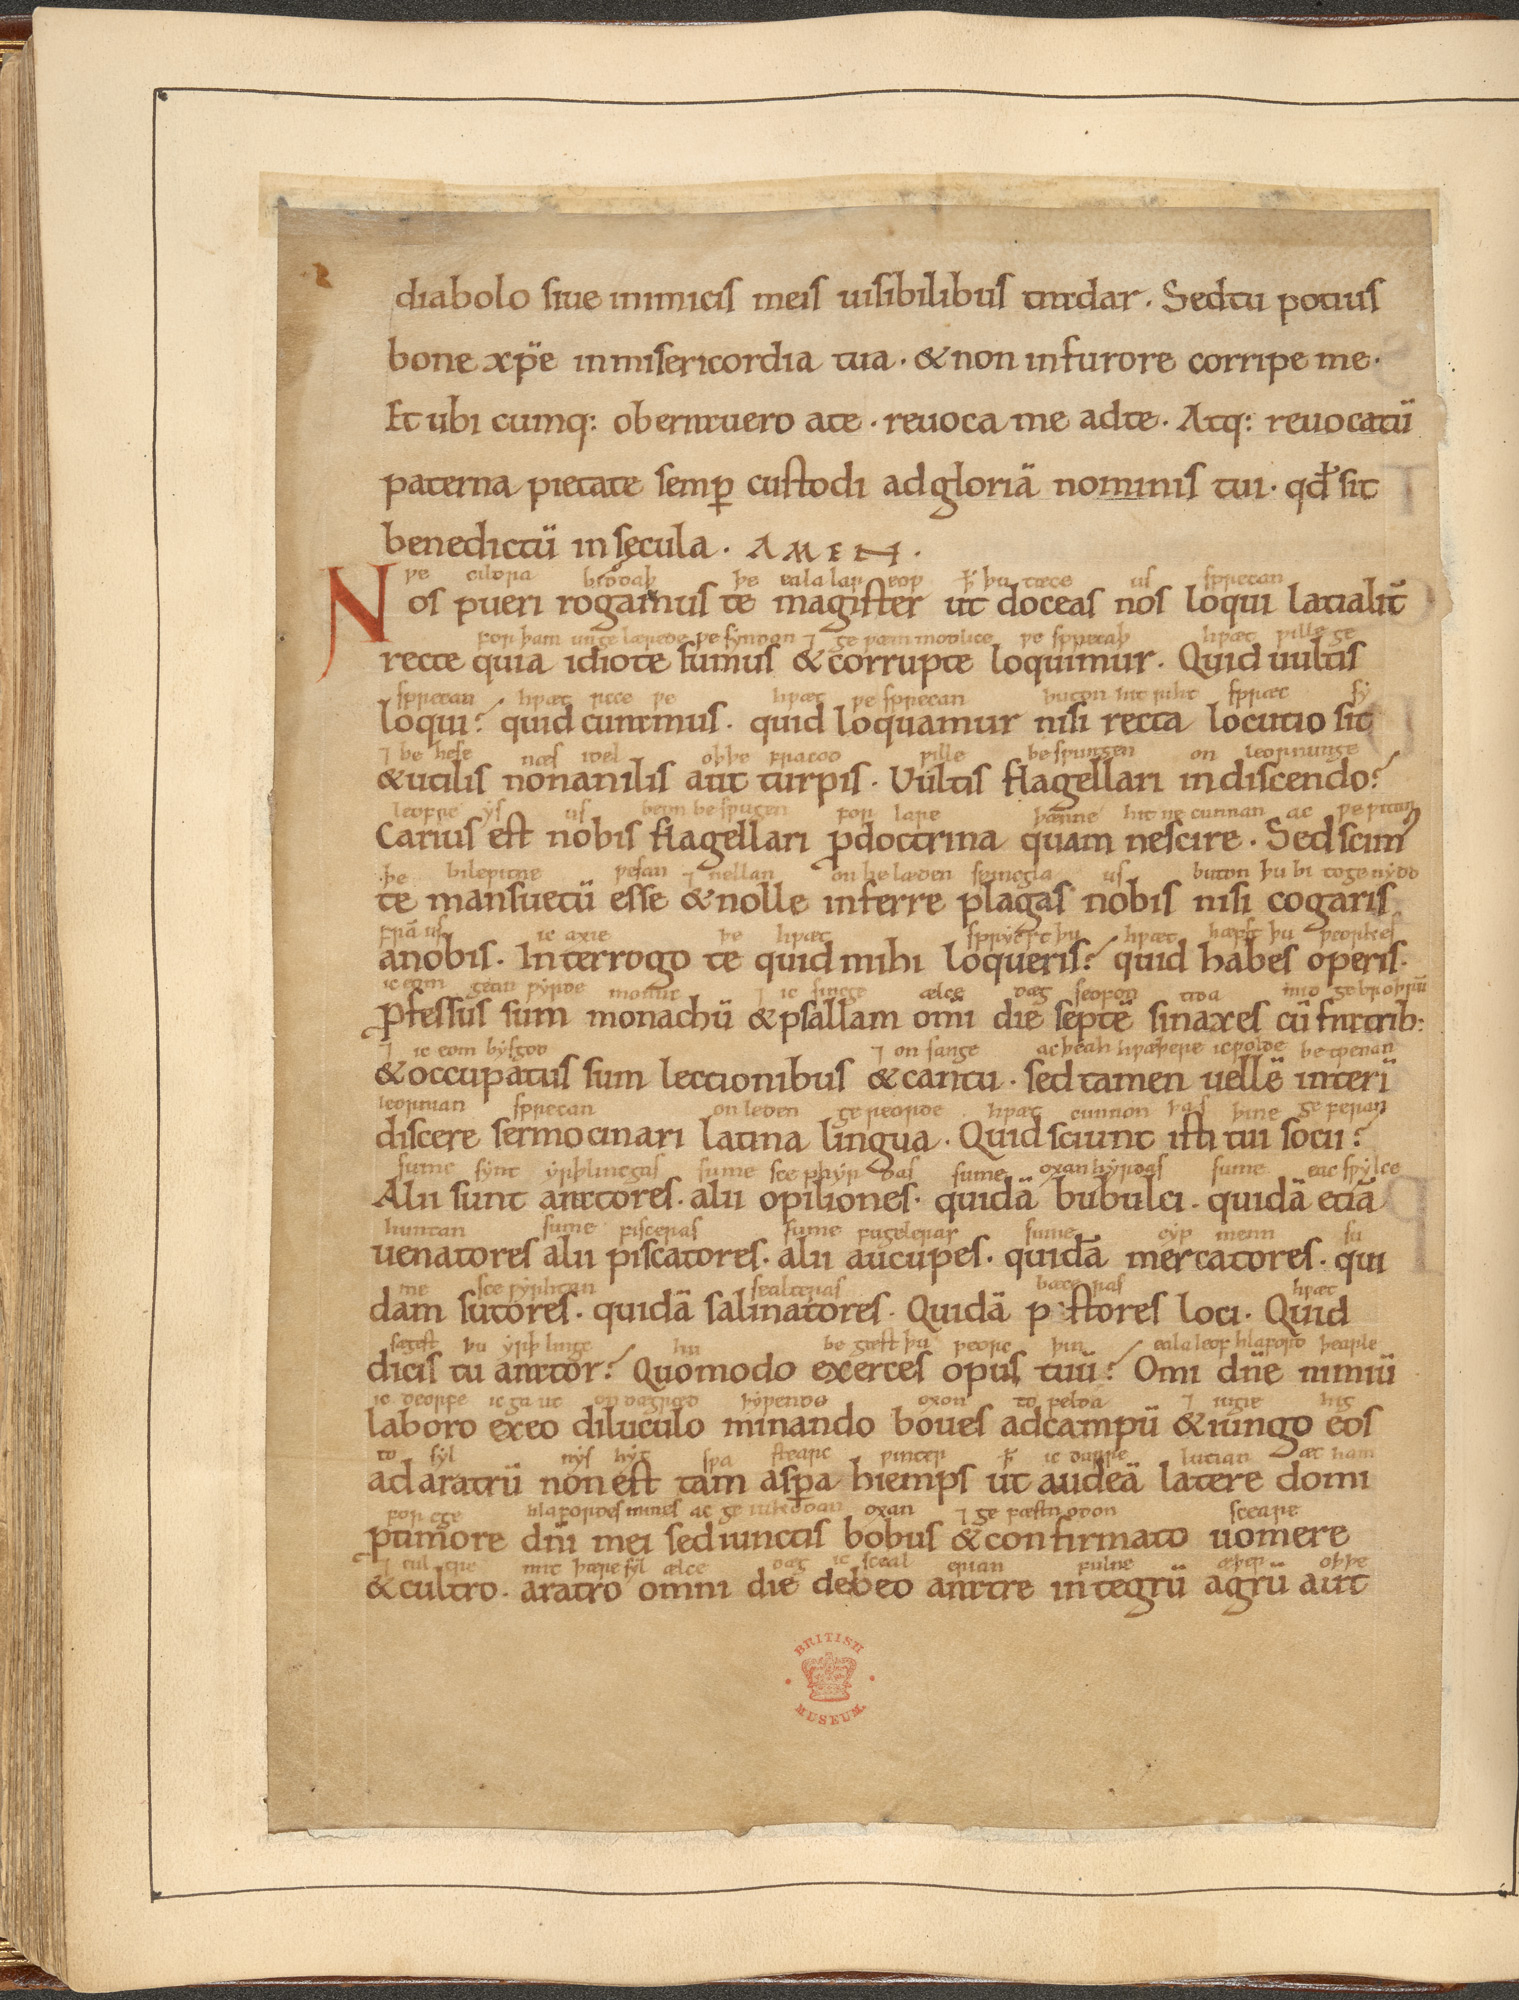 diabolo siue inimicis meis uisibilibus tradar. Sed tu potius
bone xp̄e in misericordia tua. & non in furore corripe me.
Et ubi cumq: oberrauero a te. reuoca me ad te. Atq: reuocatū
paterna pietate semp̄ custodi ad gloriā nominis tui. qđ sit
benedictū in sęcula. AMEN.
ƿe cildra biddaþ þe eala lareop ꝥ þu tæce us sprecan
Nos pueri rogamus te magister ut doceas nos loqui latialit̄
forþam ungelærede ƿe syndon ⁊ geƿæmmodlice ƿe sprecaþ hƿæt ƿille ge
recte quia idiote sumus & corrupte loquimur. Quid uultis
sprecan hƿæt rece ƿe hƿæt ƿe sprecan buton hit riht spræc sy
loqui? quid curamus. quid loquamur nisi recta locutio sit
⁊ behefe næs idel oþþe fracod ƿille besƿungen on leornunge
& utilis non anilis aut turpis. Uultis flagellari in discendo?
leofre ys us beon besƿugen for lare þænne hit ne cunnan ac ƿe ƿitan
Carius est nobis flagellari p doctrina quam nescire. Sed scim'
þe bileƿitne ƿesan ⁊ nellan onbelæden sƿincgla us buton þu bi togenydd
te mansuetū esse & nolle inferre plagas nobis nisi cogaris
frā us ic axie þe hƿæt sprycst þu hƿæt hæfst þu ƿeorkes
a nobis. Interrogo te quid mihi loqueris? quid habes operis.
ic eom geanƿyrde monuc ⁊ ic sincge ælce dæg seofon tida mid gebroþrū
Pfessus sum monachū & psallam omī die septē sinaxes cū fratrib:
⁊ ic eom bysgod ⁊ on sange ac þeah hƿæþere ic ƿolde betƿenan
& occupatus sum lectionibus & cantu. sed tamen uellē interī
leornian sprecan on leden gereorde hƿæt cunnon þas þine geferan
discere sermocinari latina lingua. Quid sciunt isti tui socii?
sume synt yrþlincgas sume scephyrdas sume oxanhyrdas sume eac sƿylce
Alii sunt aratores. alii opiliones. quidā bubulci. quidā etiā
huntan sume fisceras sume fugeleras sume cypmenn su
uenatores alii piscatores. alii aucupes. quidā mercatores. qui
me sceƿyrhtan sealteras bæceras hƿæt
dam sutores. quidā salinatores. Quidā pistores loci. Quid
sægest þu yrþlingc hu begæst þu ƿeorc þin eala leof hlaford þearle
dicis tu arator? Quomodo exerces opus tuū? O mi dn̄e nimiū
ic deorfe ic ga ut on dægræd þyƿende oxon to felda ⁊ iugie hig
laboro exeo diluculo minando boues ad campū & iungo eos
to syl nys hyt sƿa stearc ƿinter ꝥ ic durre lutian æt ham
ad aratrū non est tam aspa hiemps ut audeā latere domi
for ege hlafordes mines ac geiukodan oxan ⁊ gefæstnodon sceare
p timore dn̄i mei sed iunctis bobus & confirmato uomere
⁊ cultre mit þære syl ælce dæg ic sceal erian fulne æþer oþþe
& cultro. aratro omni die debeo arare integrū agrū aut
BRITISH MUSEUM